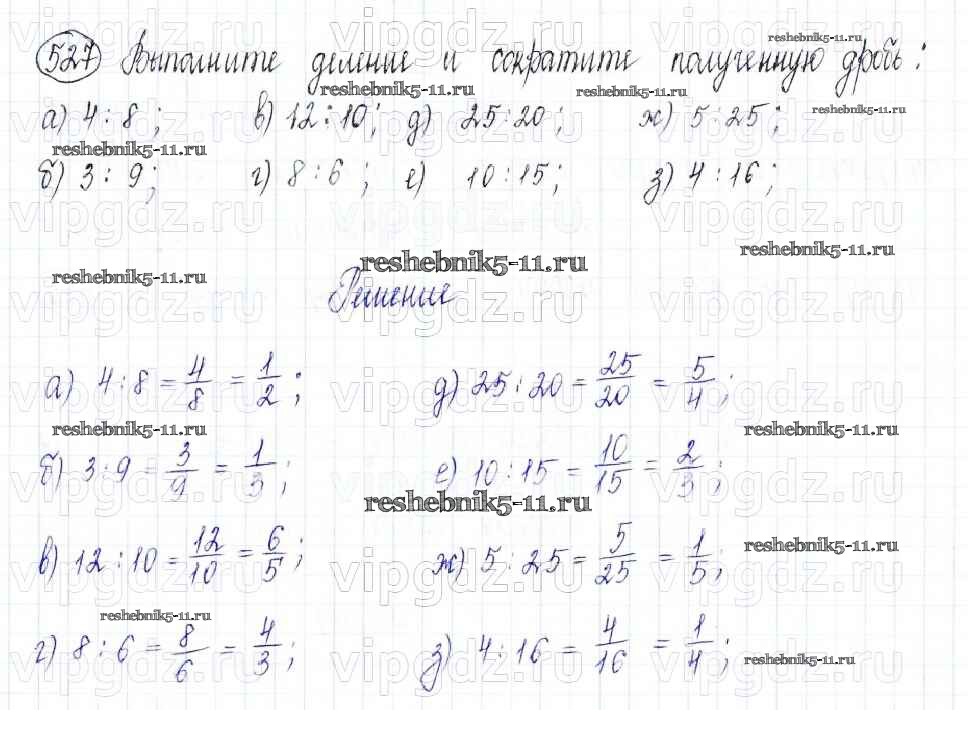 527 Выполните деление и сократите полученную дробь:
а) 4 : 8; в) 12 : 10; д) 25 : 20; ж) 5 : 25;
б) 3 : 9; г) 8 : 6; е) 10 : 15; з) 4 : 16;
Решение
а) 4 : 8 = 4/8 = 1/2; д) 25 : 20 = 25/20 = 5/4;
б) 3 : 9 = 3/9 = 1/3; е) 10 : 15 = 10/15 = 2/3;
в) 12 : 10 = 12/10 = 6/5; ж) 5 : 25 = 5/25 = 1/5;
г) 8 : 6 = 8/6 = 4/3; з) 4 : 16 = 4/16 = 1/4;
reshebnik5-11.ru
vipgdz.ru